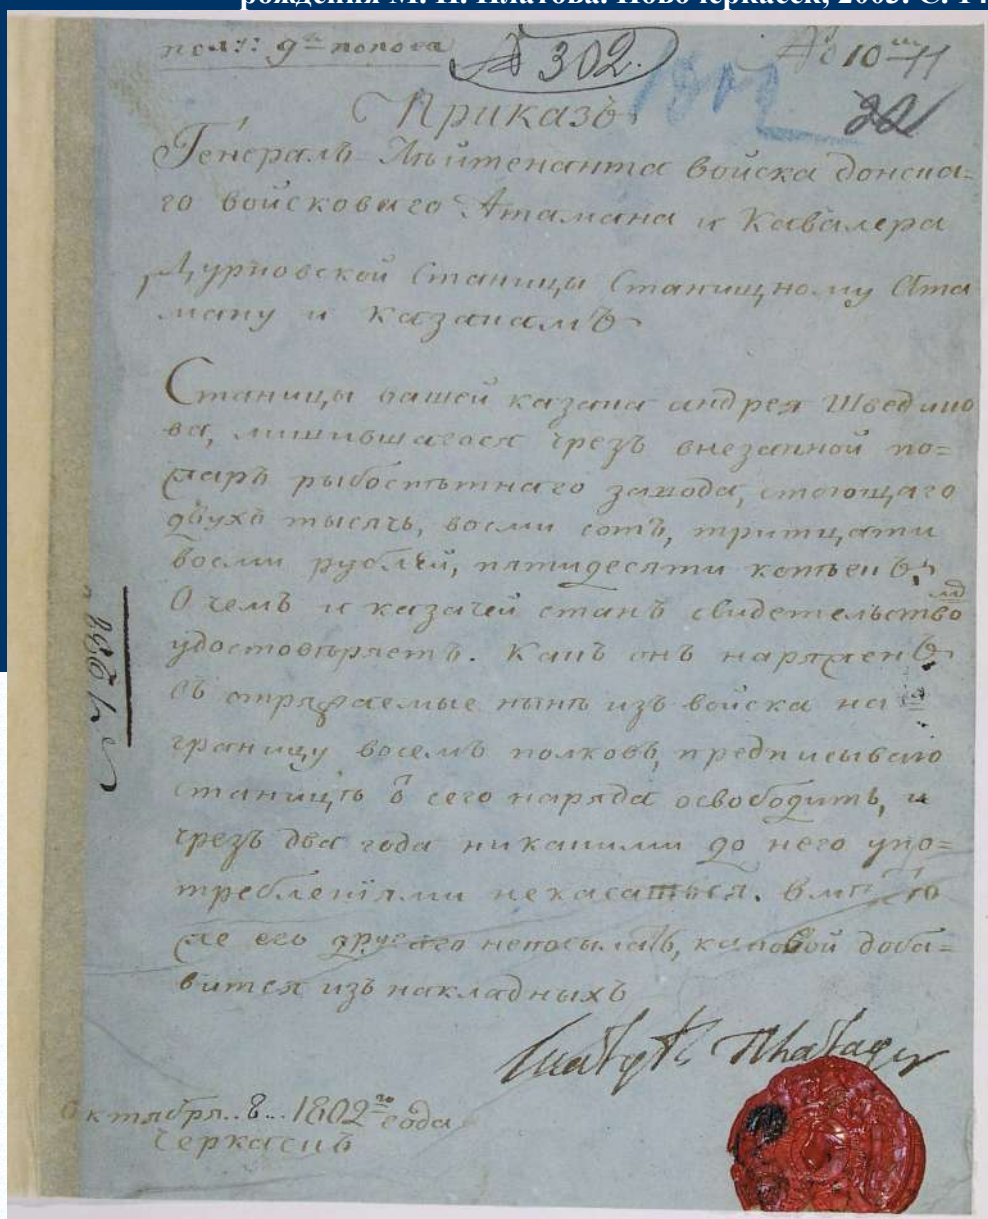 рождения М. И. Платова. Новочеркасск, 2003. С. 14
пол: 9го попова
№ 302.
№ 10й 11
1802
221
Приказъ
Генералъ Лѣйтенанта войска донска=
го войсковаго Атамана и Кавалера
Дурновской Станицы Станишному Ата
ману и казакамъ
Станицы вашей казака андрея Шведчико
ва, лишившагося чрезъ внезапной по=
жаръ рыбоспѣтнаго завода, стоющаго
двухъ тысячь, восми сотъ, тритцати
восми рублей, пятидесяти копѣекъ,
О чемъ и казачей станъ свидетельство
удостовѣряетъ. Какъ онъ наряженъ
въ отряжаемые нынѣ изъ войска на
границу восемь полковъ, предписываю
станицѣ ѿ сего наряда освободить, и
чрезъ два года никакими до него упо=
требленіями некасатъся. вмѣсто
же его другаго непосылать, каковой доба=
вится изъ накладныхъ
Матвѣй Платовъ
октября..8...1802го года
Черкаскъ